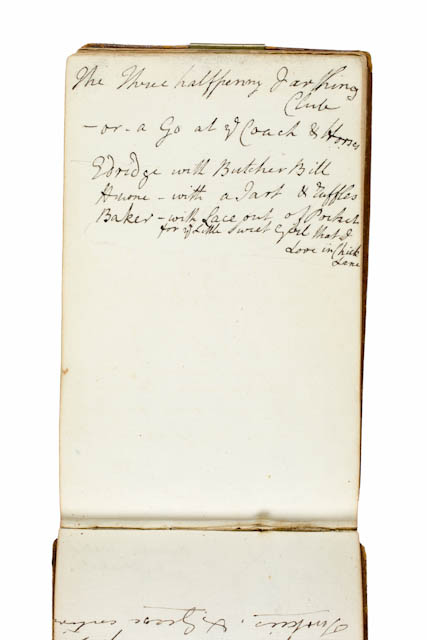 The Three halfpenny Farthing
Club
– or – a Go at ye Coach & Horses
Edridge with Butcher Bill
Howne – with a Tart & Ruffles
Baker – with Lace out of Pocket
for ye Little Sweet Girl that I
Love in Chick
Lane